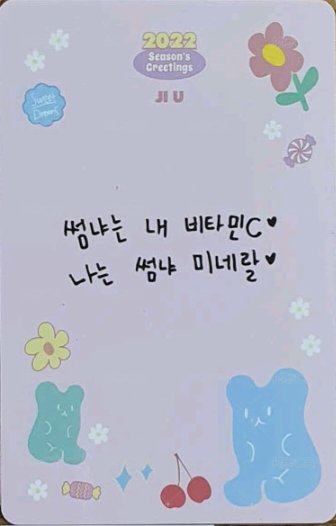 2022
Season's
Greetings
JI U
Sweet
Dreams
썸냐는 내 비타민C♥
나는 썸냐 미네랄♥